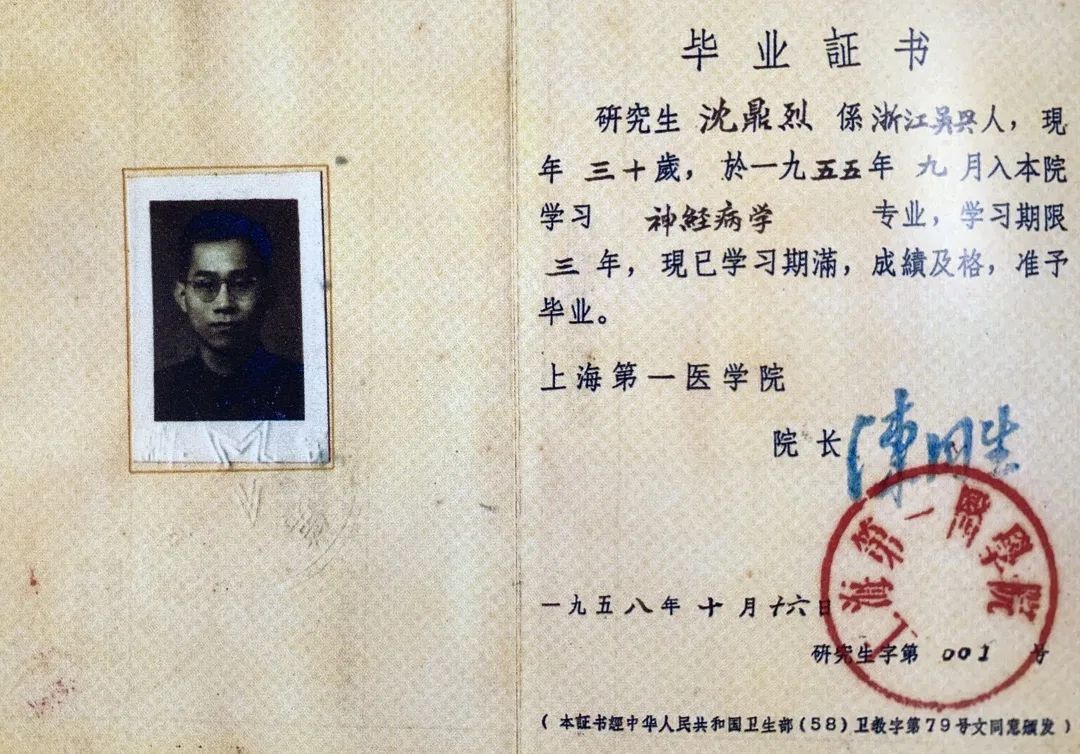 毕业証书
研究生 沈鼎烈 係浙江吴兴人，現
年 三十歲，於一九五五年 九 月入本院
学习 神経病学 专业，学习期限
三 年，現已学习期滿，成績及格，准予
毕业。
上海第一医学院
院长 陳同生
上海第一醫學院
一九五八年 十 月 十六日
研究生字第 001 号
（本証书經中华人民共和国卫生部(58)卫教字第79号文同意頒发）